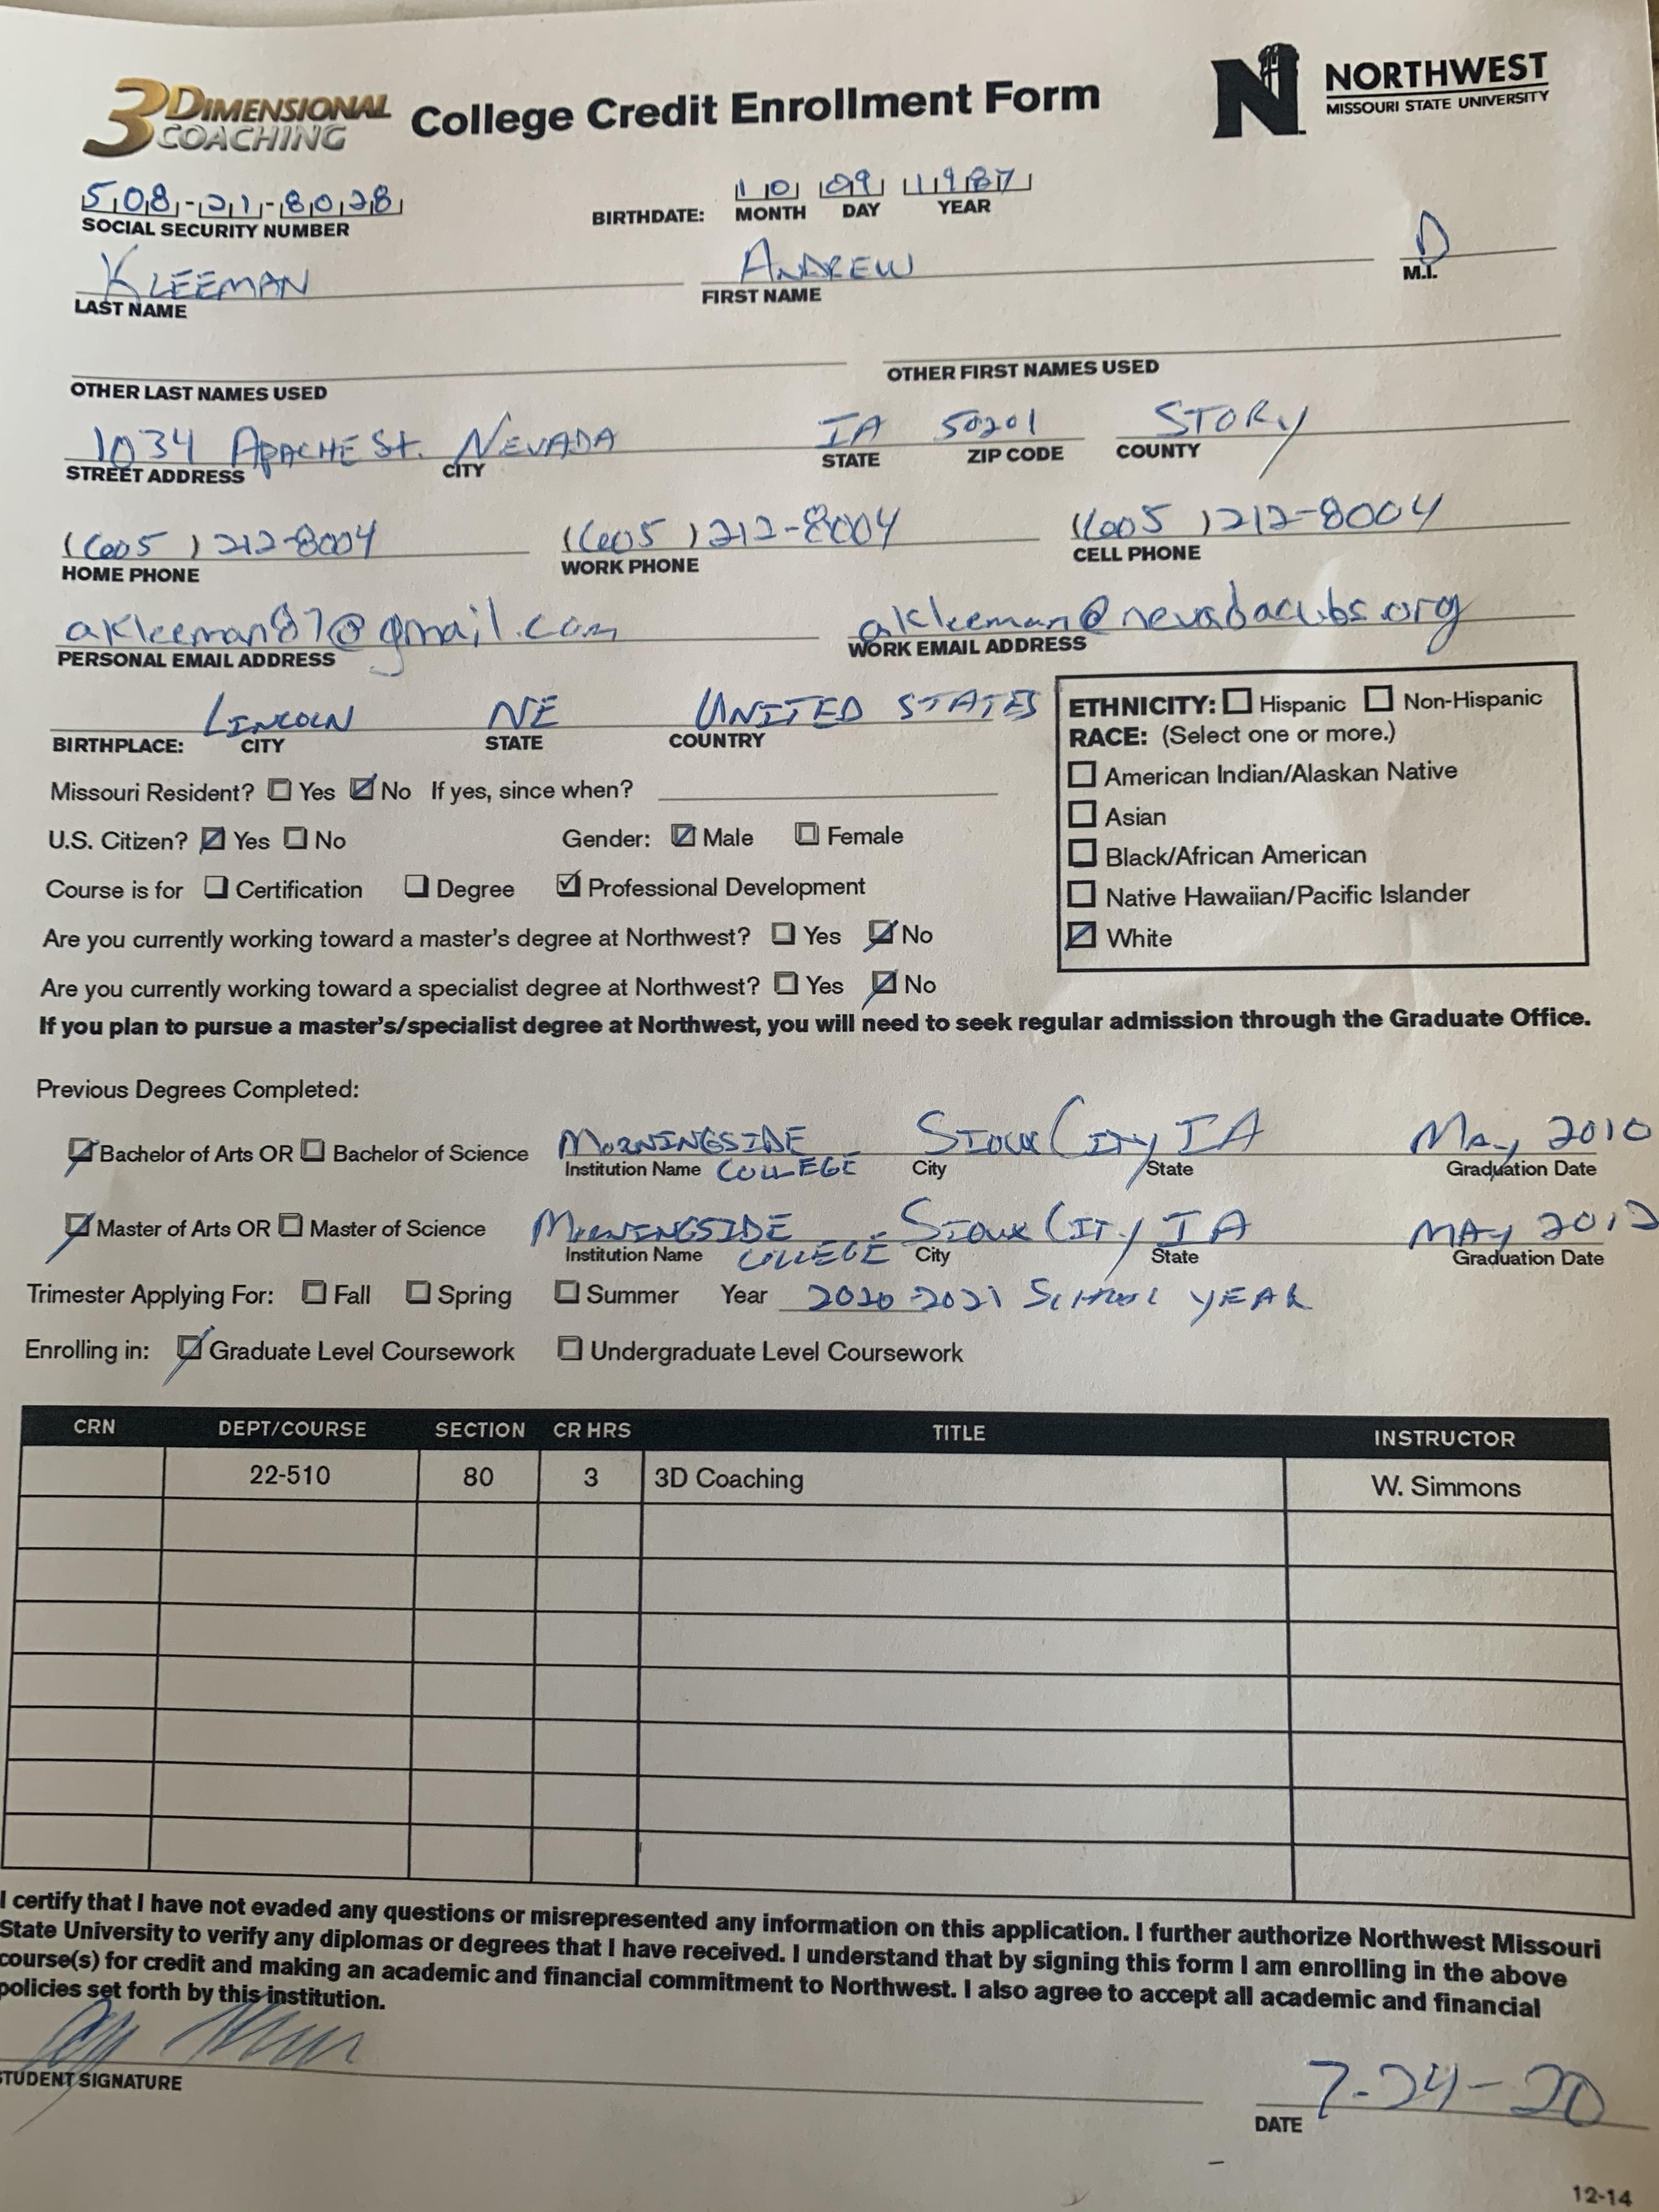 3DIMENSIONAL COACHING College Credit Enrollment Form NORTHWEST
MISSOURI STATE UNIVERSITY
508-21-8028 BIRTHDATE: 10 09 1987
SOCIAL SECURITY NUMBER MONTH DAY YEAR
KLEEMAN ANDREW D
LAST NAME FIRST NAME M.I.
OTHER LAST NAMES USED OTHER FIRST NAMES USED
1034 APACHE St. NEVADA IA 50201 STORY
STREET ADDRESS CITY STATE ZIP CODE COUNTY
(605) 212-8004 (605) 212-8004 (605) 212-8004
HOME PHONE WORK PHONE CELL PHONE
akleeman87@gmail.com akleeman@nevadacubs.org
PERSONAL EMAIL ADDRESS WORK EMAIL ADDRESS
LINCOLN NE UNITED STATES
BIRTHPLACE: CITY STATE COUNTRY
ETHNICITY: Hispanic Non-Hispanic
RACE: (Select one or more.)
American Indian/Alaskan Native
Asian
Black/African American
Native Hawaiian/Pacific Islander
White
Missouri Resident? Yes No If yes, since when?
U.S. Citizen? Yes No Gender: Male Female
Course is for Certification Degree Professional Development
Are you currently working toward a master's degree at Northwest? Yes No
Are you currently working toward a specialist degree at Northwest? Yes No
If you plan to pursue a master's/specialist degree at Northwest, you will need to seek regular admission through the Graduate Office.
Previous Degrees Completed:
Bachelor of Arts OR Bachelor of Science MORNINGSIDE SIOUX CITY IA May 2010
Institution Name COLLEGE City State Graduation Date
Master of Arts OR Master of Science MORNINGSIDE SIOUX CITY IA MAY 2012
Institution Name COLLEGE City State Graduation Date
Trimester Applying For: Fall Spring Summer Year 2020-2021 SCHOOL YEAR
Enrolling in: Graduate Level Coursework Undergraduate Level Coursework
CRN DEPT/COURSE SECTION CR HRS TITLE INSTRUCTOR
22-510 80 3 3D Coaching W. Simmons
I certify that I have not evaded any questions or misrepresented any information on this application. I further authorize Northwest Missouri
State University to verify any diplomas or degrees that I have received. I understand that by signing this form I am enrolling in the above
course(s) for credit and making an academic and financial commitment to Northwest. I also agree to accept all academic and financial
policies set forth by this institution.
7-24-20
STUDENT SIGNATURE DATE
12-14